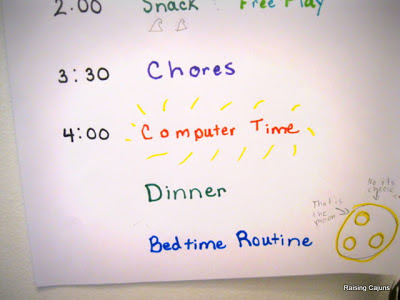 2:00 Snack : Free Play
3:30 Chores
4:00 Computer Time
Dinner
Bedtime Routine
That is
the
moon
No its
cheese
Raising Cajuns